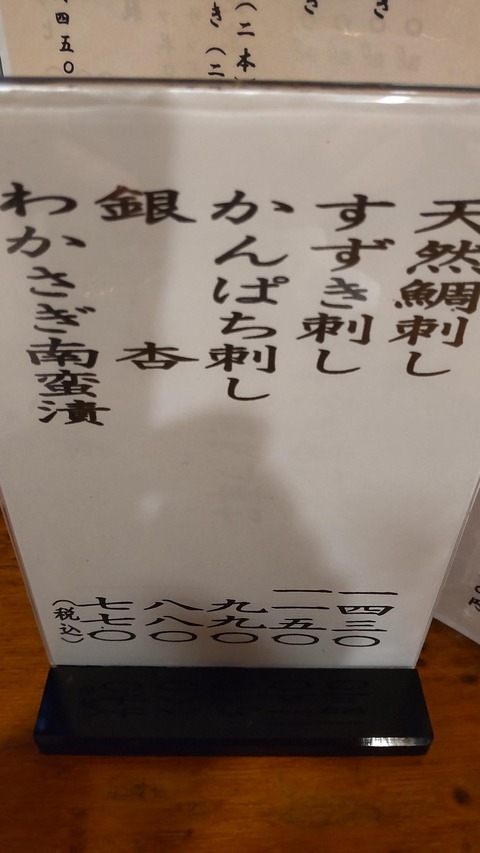 天然鯛刺し 一四三〇
すずき刺し 一一五〇
かんぱち刺し 九九〇
銀杏 八八〇
わかさぎ南蛮漬 七七〇
(税込)
(二本
四五〇